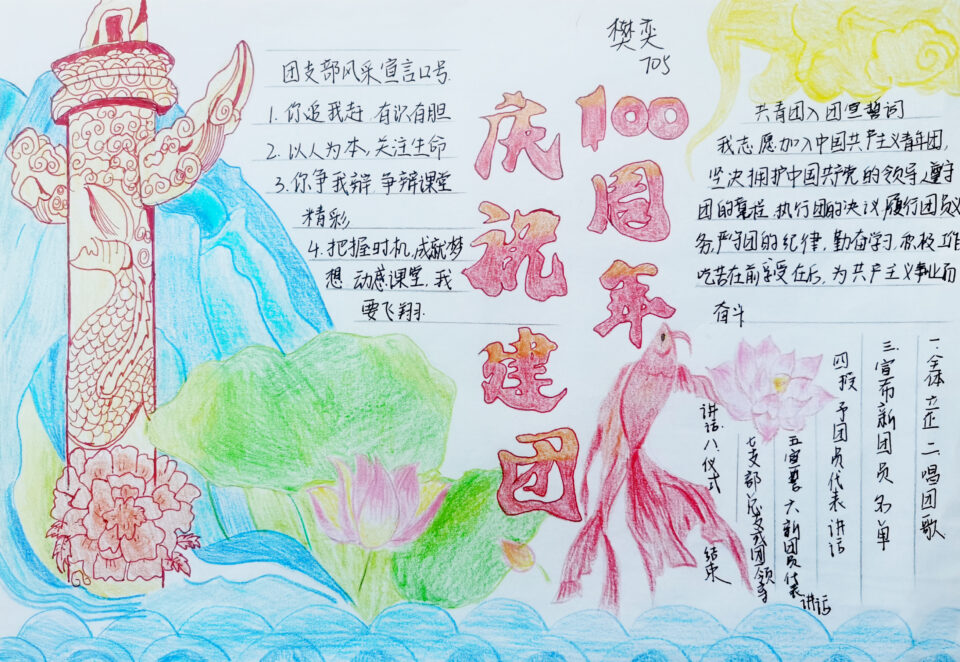 樊奕
705
庆祝建团
100周年
团支部风采宣言口号.
1. 你追我赶 有识有胆
2. 以人为本,关注生命
3. 你争我辩 争辩课堂
精彩
4. 把握时机,成就梦
想 动感课堂,我
要飞翔.
共青团入团宣誓词
我志愿加入中国共产主义青年团,
坚决拥护中国共产党的领导,遵守
团的章程,执行团的决议,履行团员义
务,严守团的纪律,勤奋学习,积极工作
吃苦在前,享受在后,为共产主义事业而
奋斗
一.全体立正 二唱团歌
三.宣布新团员名单
四授 予团员代表讲话
五宣誓 六新团员代表
讲话
七支部 团领导
讲话 八仪式 结束